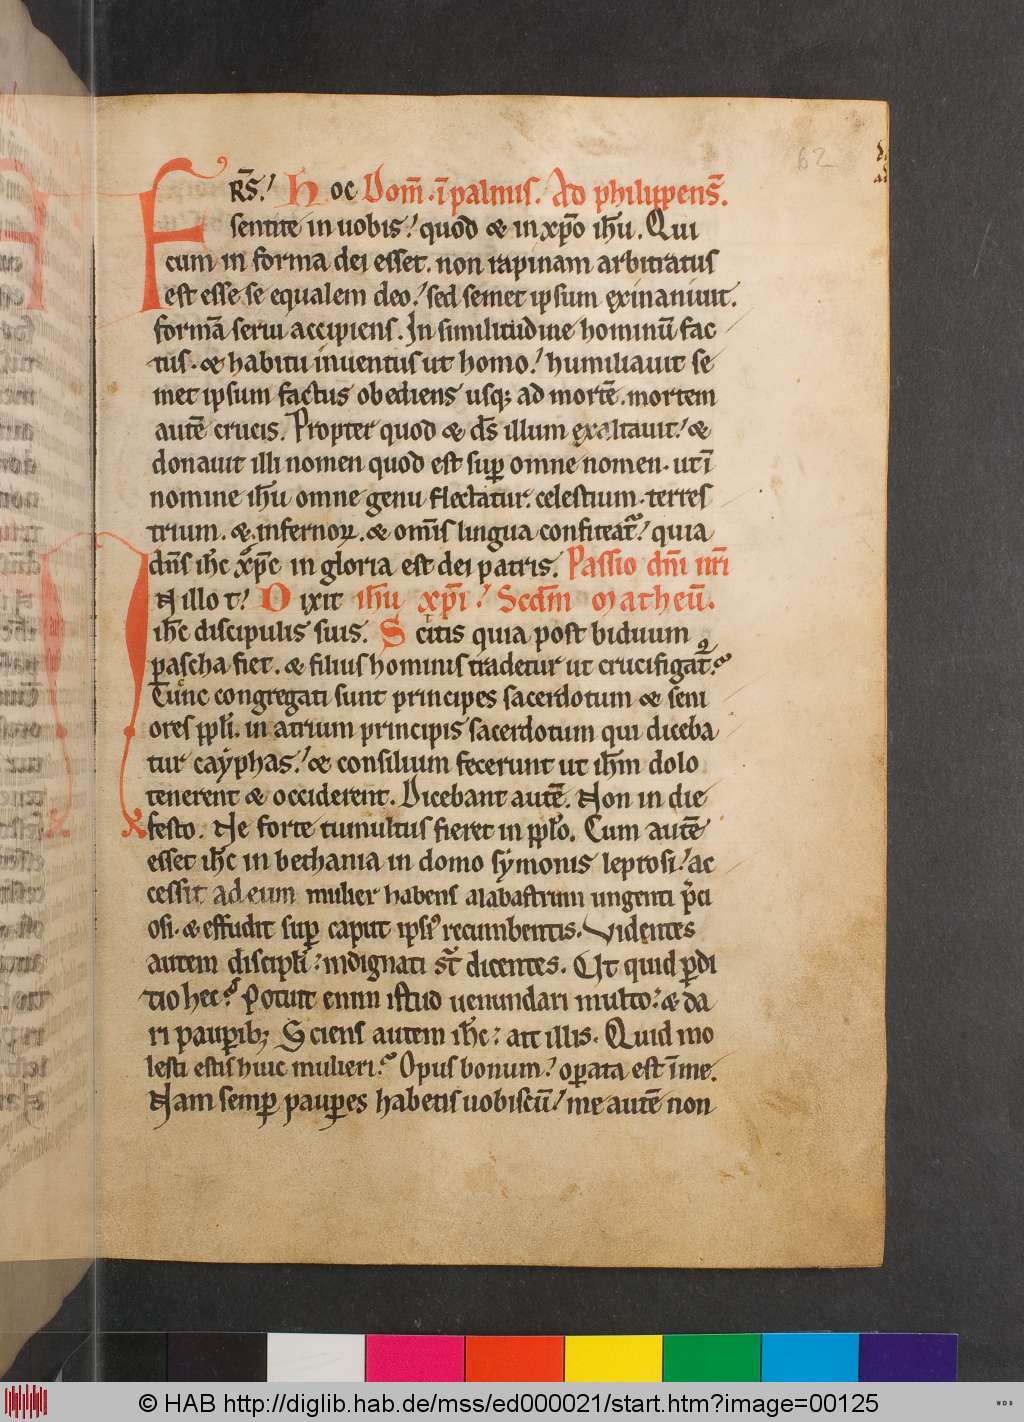 62
FRS̅. Hoc Dom̅. i̅ palmis. Ad philippens̅.
sentite in uobis. quod & in xp̅o ih̅u. Qui
cum in forma dei esset. non rapinam arbitratus
est esse se equalem deo. sed semet ipsum exinaniuit.
forma̅ serui accipiens. In similitudine hominu̅ fac
tus. & habitu inuentus ut homo. humiliauit se
met ipsum factus obediens usq; ad morte̅. mortem
aute̅ crucis. Propter quod & d̅s illum exaltauit. &
donauit illi nomen quod est sup̱ omne nomen. ut i̅
nomine ih̅u omne genu flectatur. celestium. terres
trium. & infernoꝝ. & omi̅s lingua confiteat̅. quia
dn̅s ih̅c xp̅c in gloria est dei patris. Passio dn̅i nr̅i
IN illo t̅. Dixit ih̅u xp̅i. Scd̅m Matheu̅.
ih̅c discipulis suis. Scitis quia post biduum
pascha fiet. & filius hominis tradetur ut crucifigat̅.
Tunc congregati sunt principes sacerdotum & seni
ores pp̅li. in atrium principis sacerdotum qui diceba
tur cayphas. & consilium fecerunt ut ih̅m dolo
tenerent & occiderent. Dicebant aute̅. Non in die
festo. Ne forte tumultus fieret in pp̅lo. Cum aute̅
esset ih̅c in bethania in domo symonis leprosi. ac
cessit ad eum mulier habens alabastrum ungenti p̅ci
osi. & effudit sup̱ caput ipsi᷒ recumbentis. Videntes
autem discipl̅i. indignati st̅ dicentes. Ut quid ꝑdi
tio hec. Potuit enim istud uenundari multo. & da
ri pauꝑib; Sciens autem ih̅c. ait illis. Quid mo
lesti estis huic mulieri. Opus bonum. oꝑata est i̅ me.
Nam semꝑ pauꝑes habetis uobiscu̅. me aute̅ non
© HAB http://diglib.hab.de/mss/ed000021/start.htm?image=00125